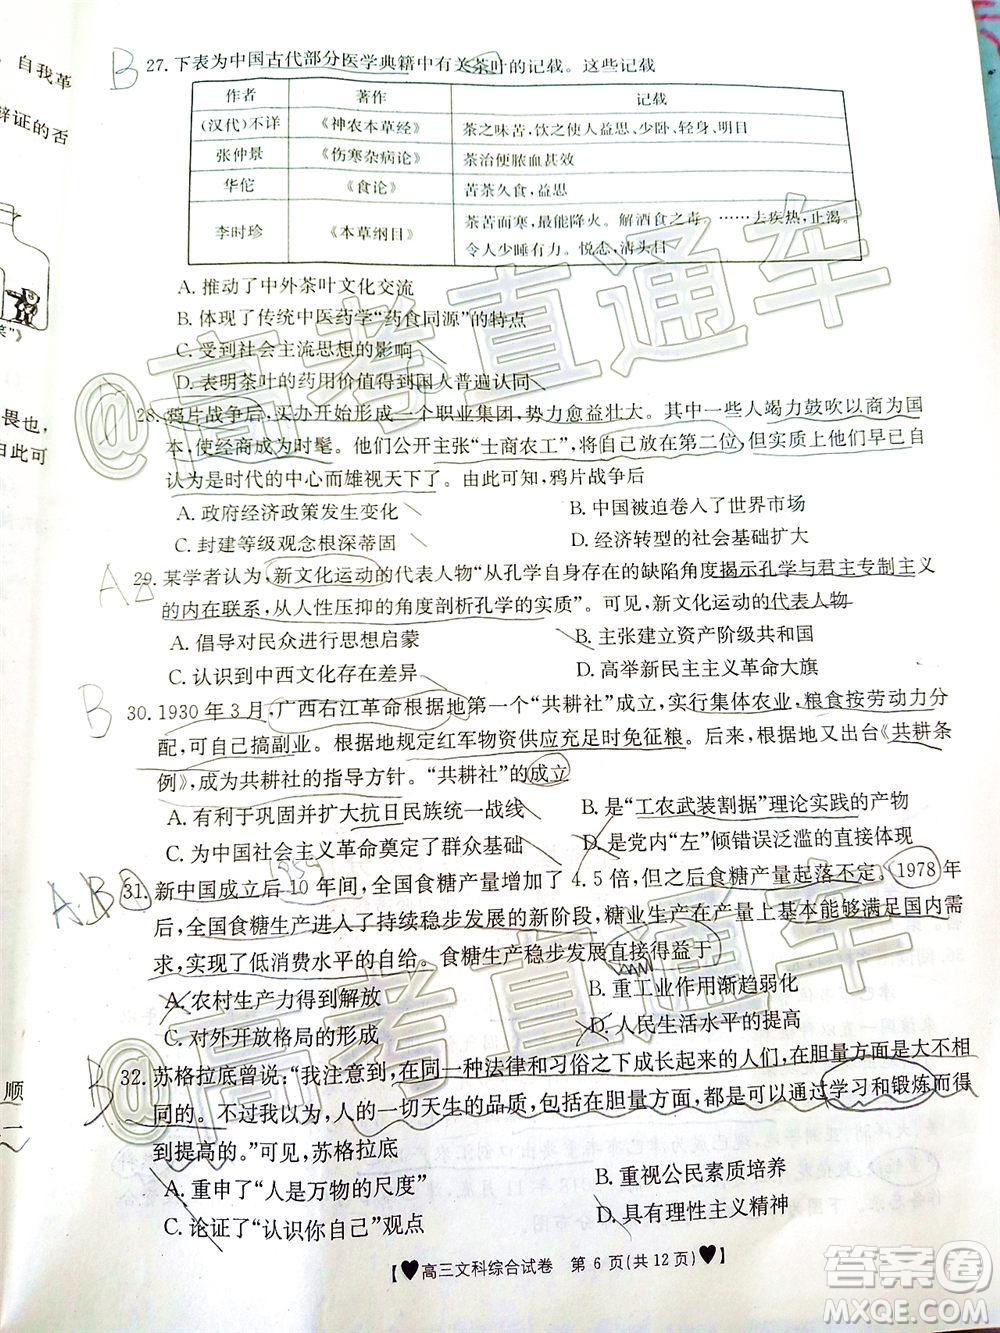 自我革
辩证的否
畏也，
由此可
顺
B 27.下表为中国古代部分医学典籍中有关茶叶的记载。这些记载
作者 著作 记载
(汉代)不详 《神农本草经》 茶之味苦，饮之使人益思、少卧、轻身、明目
张仲景 《伤寒杂病论》 茶治便脓血甚效
华佗 《食论》 苦茶久食，益思
李时珍 《本草纲目》 茶苦而寒，最能降火。解酒食之毒。……去疾热，止渴。
令人少睡有力。悦志，清头目
A. 推动了中外茶叶文化交流
B. 体现了传统中医药学“药食同源”的特点
C. 受到社会主流思想的影响
D. 表明茶叶的药用价值得到国人普遍认同
28. 鸦片战争后，买办开始形成一个职业集团，势力愈益壮大。其中一些人竭力鼓吹以商为国
本，使经商成为时髦。他们公开主张“士商农工”，将自己放在第二位，但实质上他们早已自
认为是时代的中心而雄视天下了。由此可知，鸦片战争后
A. 政府经济政策发生变化 B. 中国被迫卷入了世界市场
C. 封建等级观念根深蒂固 D. 经济转型的社会基础扩大
A 29. 某学者认为，新文化运动的代表人物“从孔学自身存在的缺陷角度揭示孔学与君主专制主义
的内在联系，从人性压抑的角度剖析孔学的实质”。可见，新文化运动的代表人物
A. 倡导对民众进行思想启蒙 B. 主张建立资产阶级共和国
C. 认识到中西文化存在差异 D. 高举新民主主义革命大旗
B 30. 1930 年 3 月，广西右江革命根据地第一个“共耕社”成立，实行集体农业，粮食按劳动力分
配，可自己搞副业。根据地规定红军物资供应充足时免征粮。根据地又出台《共耕条
例》，成为共耕社的指导方针。“共耕社”的成立
A. 有利于巩固并扩大抗日民族统一战线 B. 是“工农武装割据”理论实践的产物
C. 为中国社会主义革命奠定了群众基础 D. 是党内“左”倾错误泛滥的直接体现
A.B 31. 新中国成立后 10 年间，全国食糖产量增加了 4.5 倍，之后食糖产量起落不定。1978 年
后，全国食糖生产进入了持续稳步发展的新阶段，糖业生产在产量上基本能够满足国内需
求，实现了低消费水平的自给。食糖生产稳步发展直接得益于
A. 农村生产力得到解放 B. 重工业作用渐趋弱化
C. 对外开放格局的形成 D. 人民生活水平的提高
B 32. 苏格拉底曾说：“我注意到，在同一种法律和习俗之下成长起来的人们，在胆量方面是大不相
同的。不过我以为，人的一切天生的品质，包括在胆量方面，都可以通过学习和锻炼而得
到提高的。”可见，苏格拉底
A. 重申了“人是万物的尺度” B. 重视公民素质培养
C. 论证了“认识你自己”观点 D. 具有理性主义精神
【♥高三文科综合试卷 第 6 页(共 12 页)♥】
@高考直通车
@高考直通车
答案圈
MXQE.COM